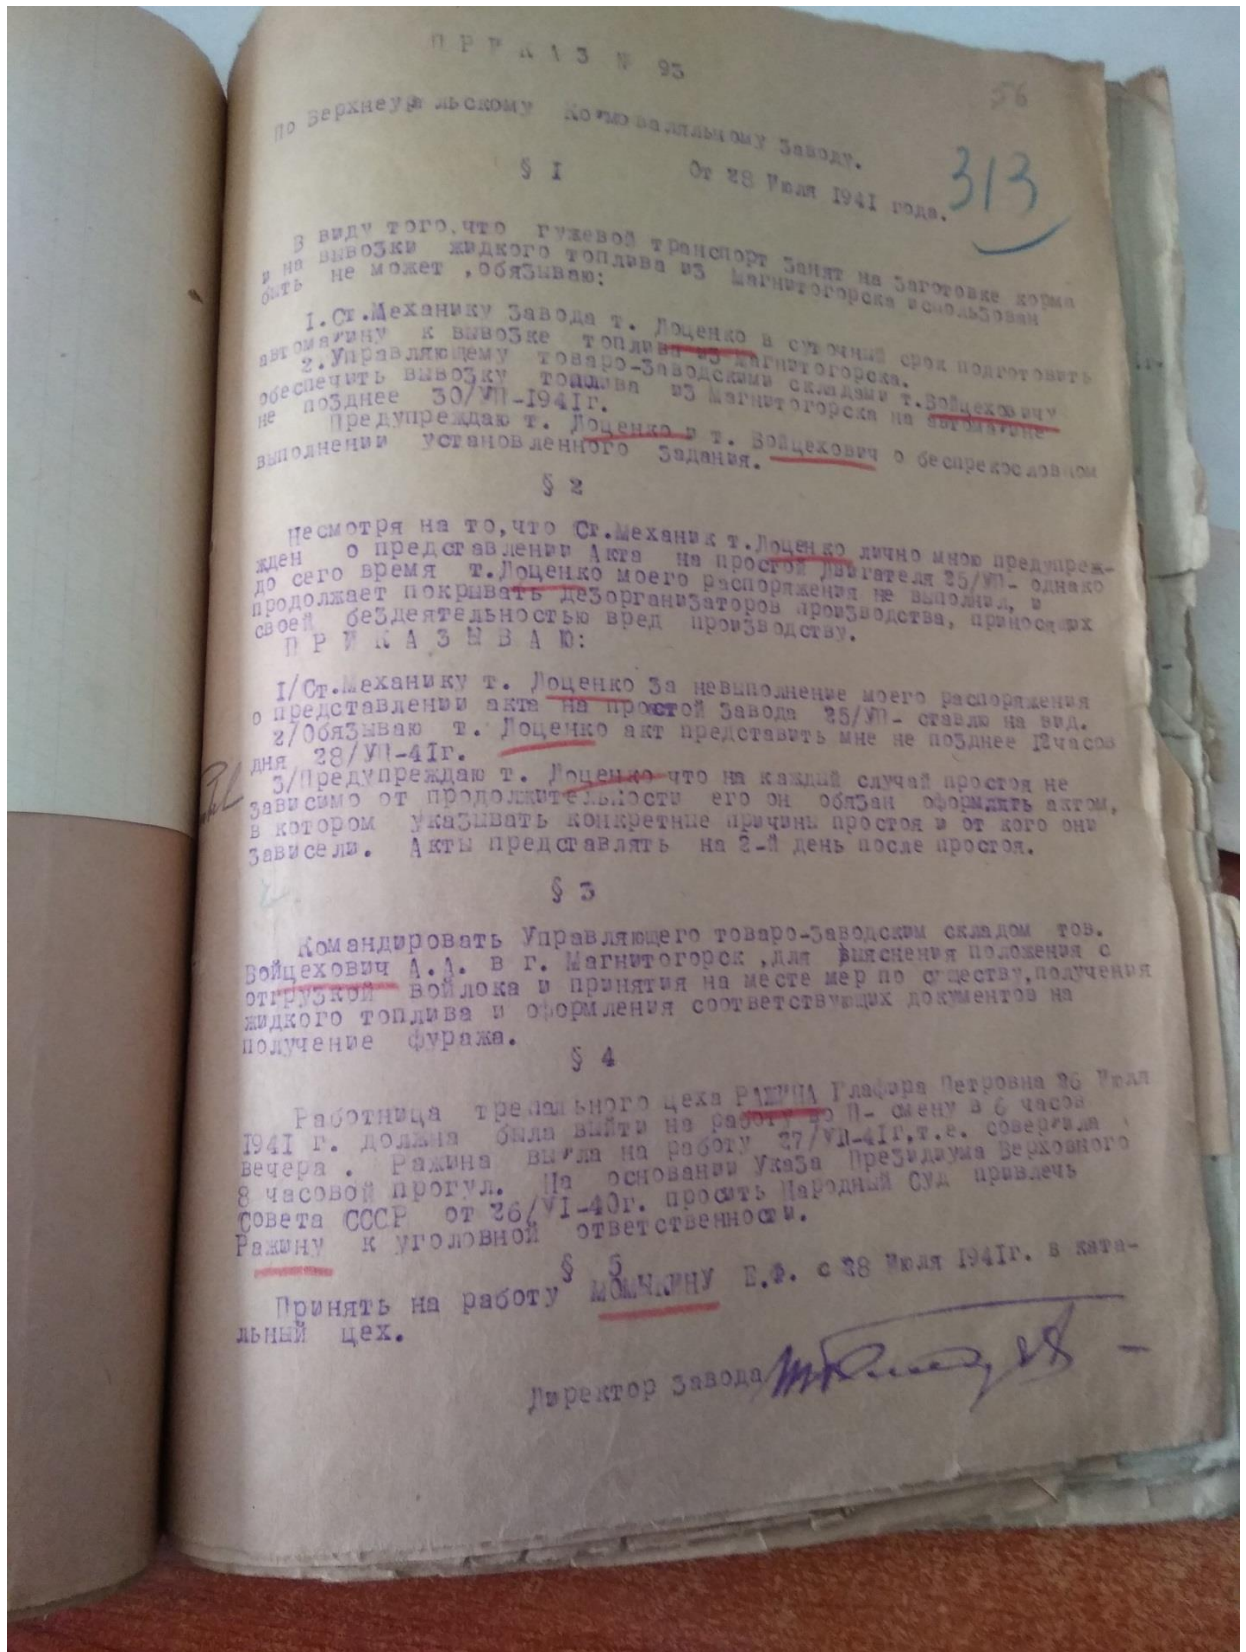 П Р И К А З № 93
56
По Верхнеуральскому Кошмоваляльному заводу.
313
§ I От 28 Июля 1941 года.
В виду того,что гужевой транспорт занят на заготовке корма
и на вывозки жидкого топлива из Магнитогорска использован
быть не может ,обязываю:
1.Ст.Механику Завода т. Лоценко в суточный срок подготовить
автомашину к вывозке топлива из магнитогорска.
2.Управляющему товаро-заводскими складами т.Войцеховичу
обеспечить вывозку топлива из Магнитогорска на автомашине
не позднее 30/УП-1941г.
Предупреждаю т. Лоценко и т. Войцехович о беспрекословном
выполнении установленного задания.
§ 2
Несмотря на то,что Ст.Механик т.Лоценко лично мною предупреж-
жден о представлении Акта на простой Двигателя 25/УП- однако
до сего время т.Лоценко моего распоряжения не выполнил, и
продолжает покрывать дезорганизаторов производства, приносящих
своей бездеятельностью вред производству.
П Р И К А З Ы В А Ю:
1/Ст.Механику т. Лоценко за невыполнение моего распоряжения
о представлении акта на простой Завода 25/УП- ставлю на вид.
2/Обязываю т. Лоценко акт представить мне не позднее 12часов
дня 28/УП-41г.
3/Предупреждаю т. Лоценко что на каждый случай простоя не
зависимо от продолжительности его он обязан оформлять актом,
в котором указывать конкретные причины простоя и от кого они
зависели. Акты представлять на 2-й день после простоя.
§ 3
Командировать Управляющего товаро-заводским складом тов.
Войцехович А.А. в г. Магнитогорск ,для выяснения положения с
отгрузкой войлока и принятия на месте мер по существу,получения
жидкого топлива и оформления соответствующих документов на
получение фуража.
§ 4
Работница трепального цеха РАЖИНА Глафира Петровна 26 Июля
1941 г. должна была выйти на работу во П- смену в 6 часов
вечера . Ражина вышла на работу 27/УП-41г,т.е. совершила
8 часовой прогул. На основании Указа Президиума Верховного
Совета СССР от 26/УІ-40г. просить Народный Суд привлечь
Ражину к уголовной ответственности.
§ 5
Принять на работу МОМЧКИНУ Е.Ф. с 28 Июля 1941г. в ката-
льный цех.
Директор завода